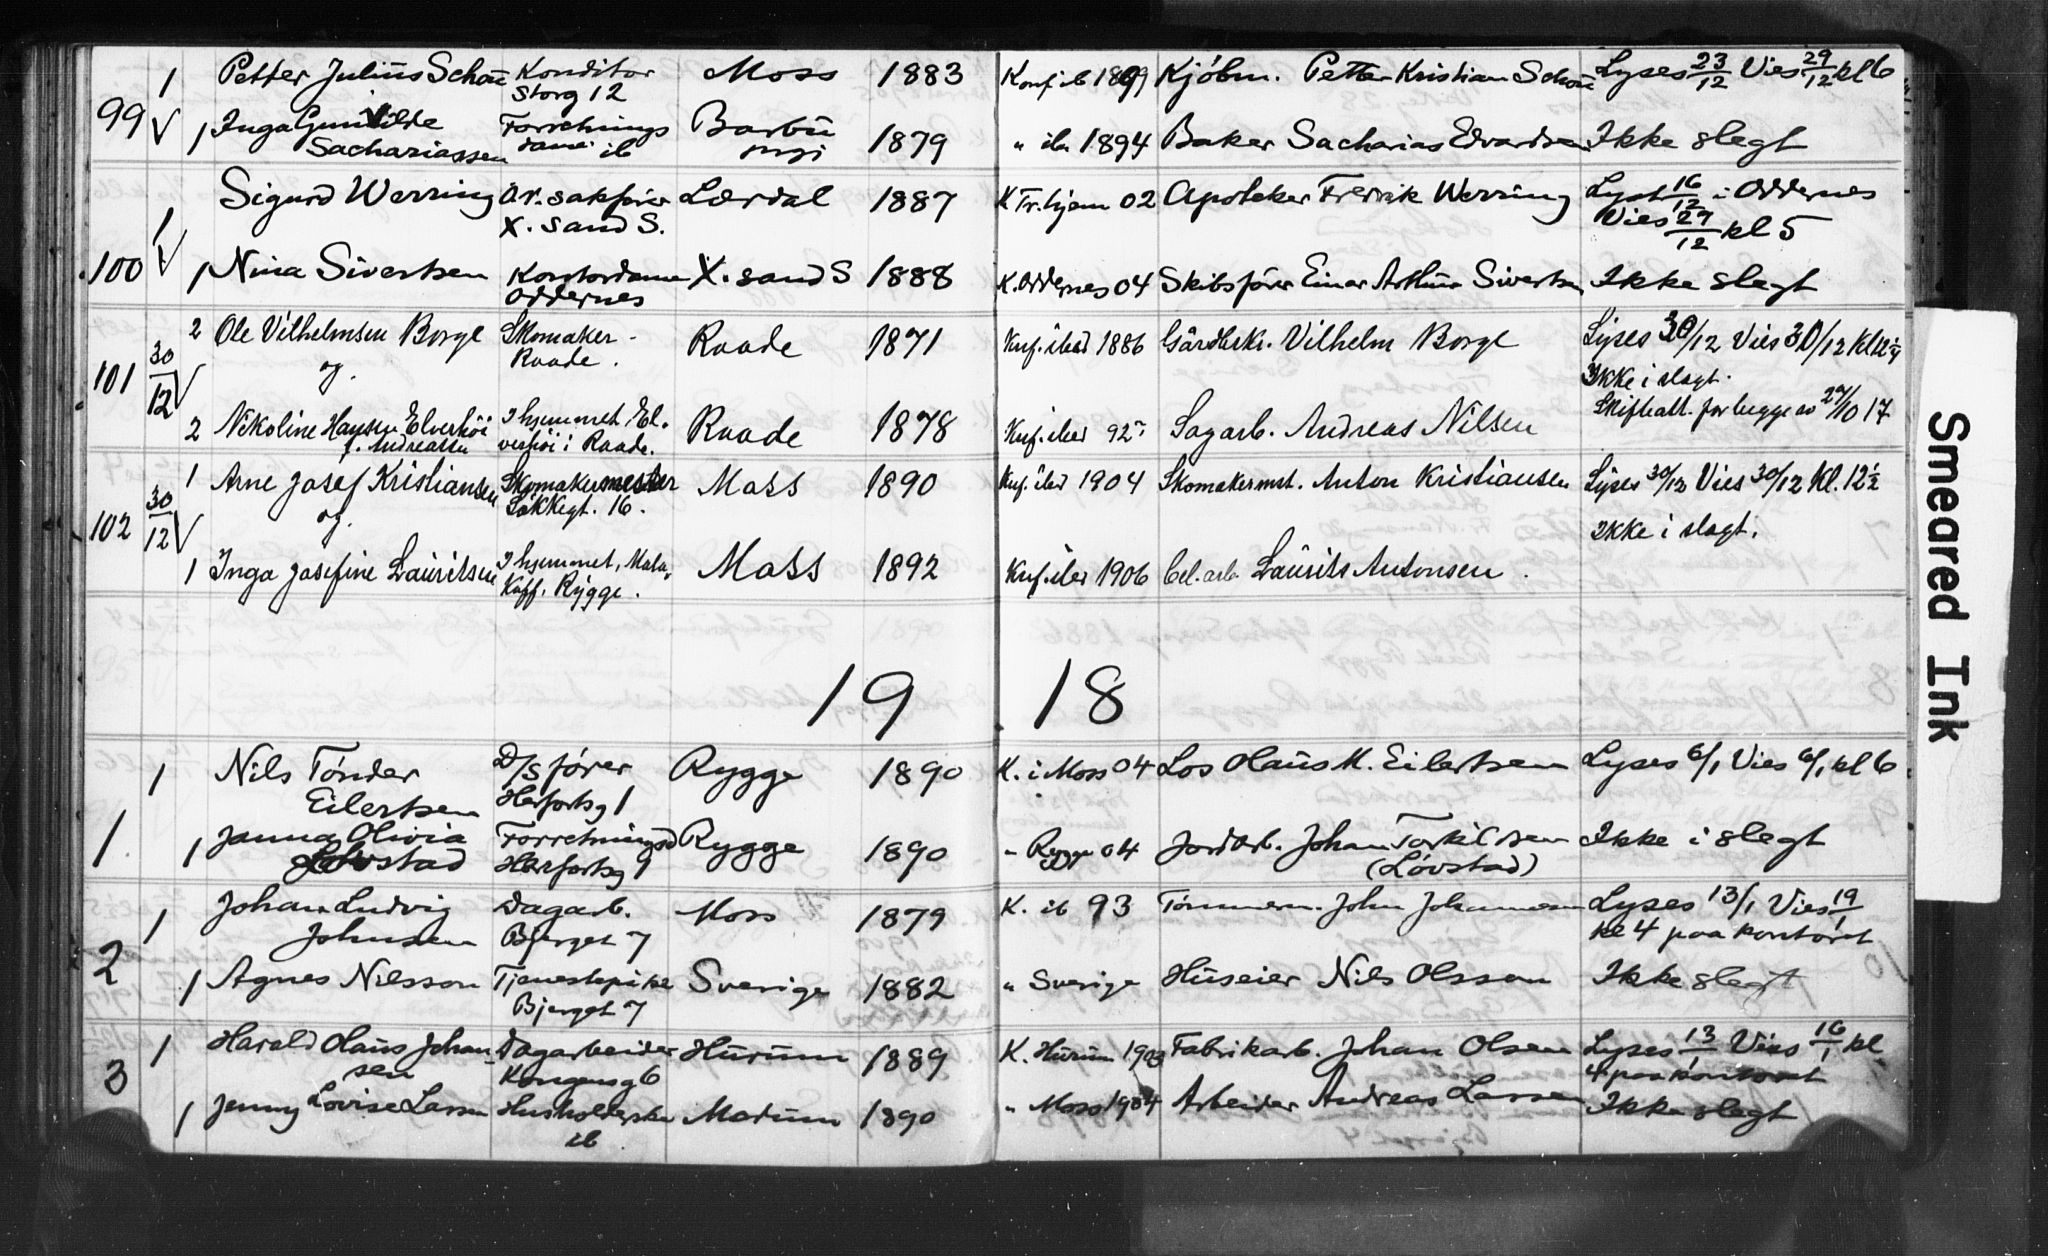 99 1 Petter Julius Schou Konditor Moss 1883 Konf ib 1899 Kjöbm. Petter Kristian Schou Lyses 23/12 Vies 29/12 kl 6
Storg 12
√ 1 Inga Gunhilde Forretnings Barbu 1879 " ib 1894 Baker Sacharias Edvardsen Ikke slegt
Sachariassen dame ib
100 1 Sigurd Werring o.r. sakfører Lærdal 1887 K Tr.hjem 02 Apoteker Fredrik Werring Lyst 16/12 i Oddernes
√ X. sand S. Vies 27/12 kl 5
1 Nina Sivertsen Kontordame X. sand S 1888 K. Oddernes 04 Skibsfører Einar Arthur Sivertsen Ikke slegt
Oddernes
101 30/12 √ 2 Ole Vilhelmsen Borge Skomaker Raade 1871 Knf. ibid 1886 Gårdbr. Vilhelm Borge Lyses 30/12 Vies 30/12 Kl 12 1/4
og. Raade. Ikke i slagt.
Skifteatt. for begge av 27/10 17
2 Nikoline Hansen Elverhöi I hjemmet El- Raade 1878 Knf. ibid 92 Sagarb. Andreas Nilsen
f. Andreassen verhöi i Raade.
102 30/12 √ 1 Arne Josef Kristiansen Skomakermester Moss 1890 Knf. ibid 1904 Skomakermst. Anton Kristiansen Lyses 30/12 Vies 30/12 Kl. 12 1/2
og. Låkkegt. 16. Ikke i slagt.
1 Inga Josefine Lauritsen I hjemmet, Moss 1892 Knf. ibid 1906 Cel. arb. Laurits Antonsen.
Rygge.
19 18
1. 1 Nils Tønder D/S fører Rygge 1890 K. i Moss 04 Los Olaus M. Eilertsen Lyses 6/1 Vies 6/1 kl 6
Eilertsen Herfortsg 1
1 Janna Olivia Forretningsd Rygge 1890 " Rygge 04 Jordarb. Johan Torkildsen Ikke i slegt
Løvstad Herfortsg 9 (Løvstad)
2 1 Johan Ludvig Dagarb. Moss 1879 K. ib 93 Tømmerm. John Johannesen Lyses 13/1 Vies 19/1
Johnsen Bjerget 7 kl 4 paa kontoret
1 Agnes Nilsson Tjenestepike Sverige 1882 " Sverige Huseier Nils Olsson Ikke slegt
Bjerget 7
3 1 Harald Olaus Johan- Dagarbeider Hurum 1889 K. Hurum 1903 Fabrikarb. Johan Olsen Lyses 13/1 Vies 16/1 kl
sen Kongensg 6 4 paa kontoret
1 Jenny Lovise Larsen Husholderske Modum 1890 " Moss 1904 Arbeider Andreas Larsen Ikke slegt
ib
Smeared Ink